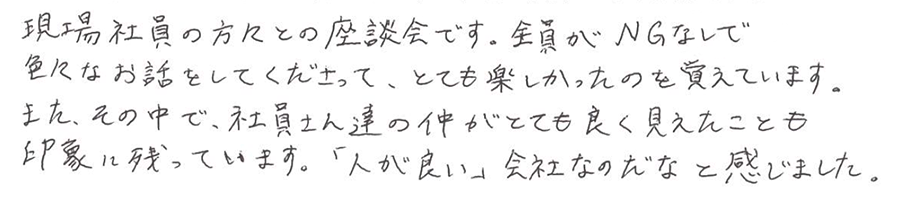 現場社員の方々との座談会です。全員がNGなしで
色々なお話をしてくださって、とても楽しかったのを覚えています。
また、その中で、社員さん達の仲がとても良く見えたことも
印象に残っています。「人が良い」会社なのだなと感じました。